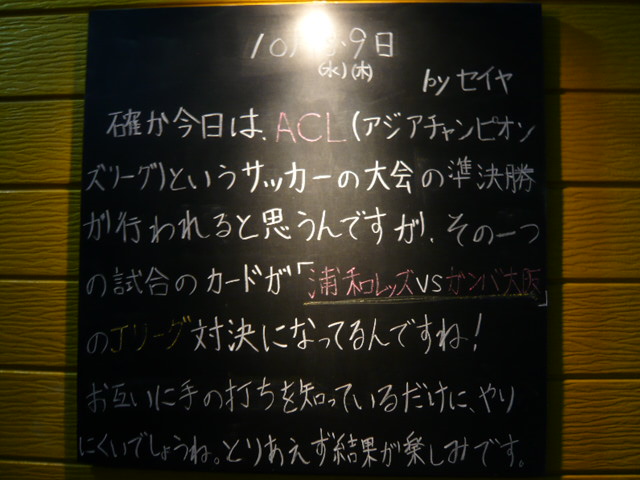 10月8・9日
(水)(木)
by セイヤ
確か今日は、ACL(アジアチャンピオン
ズリーグ)というサッカーの大会の準決勝
が行われると思うんですが、その一つ
の試合のカードが「浦和レッズVSガンバ大阪」
のJリーグ対決になってるんですね!
お互いに手の打ちを知っているだけに、やり
にくいでしょうね。とりあえず結果が楽しみです。